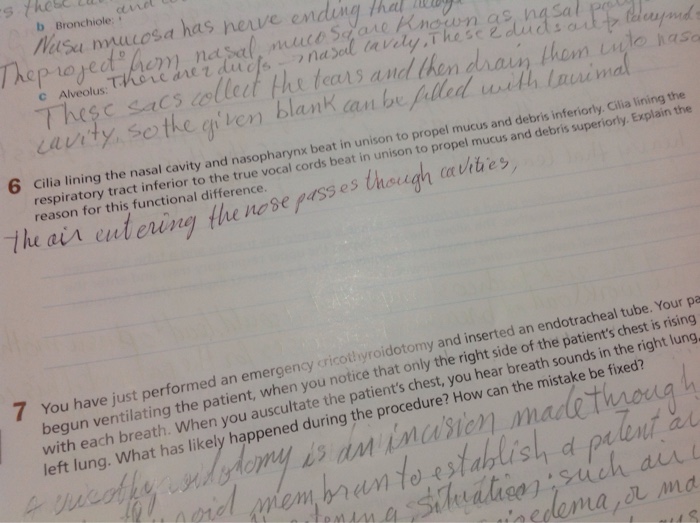 b Bronchiole:
Nasal mucosa has nerve ending that
The project from nasal mucosa are known as nasal
c Alveolus: There are 2 ducts → nasal cavity. These 2 ducts are
These sacs collect the tears and then drain them into nasa
cavity. So the given blank can be filled with lacrimal
6 Cilia lining the nasal cavity and nasopharynx beat in unison to propel mucus and debris inferiorly. Cilia lining the
respiratory tract inferior to the true vocal cords beat in unison to propel mucus and debris superiorly. Explain the
reason for this functional difference.
the air entering the nose passes though cavities,
7 You have just performed an emergency cricothyroidotomy and inserted an endotracheal tube. Your pa
begun ventilating the patient, when you notice that only the right side of the patient's chest is rising
with each breath. When you auscultate the patient's chest, you hear breath sounds in the right lung,
left lung. What has likely happened during the procedure? How can the mistake be fixed?
is an incision made through
membran to establish a patent ai
situation: such
edema, or ma